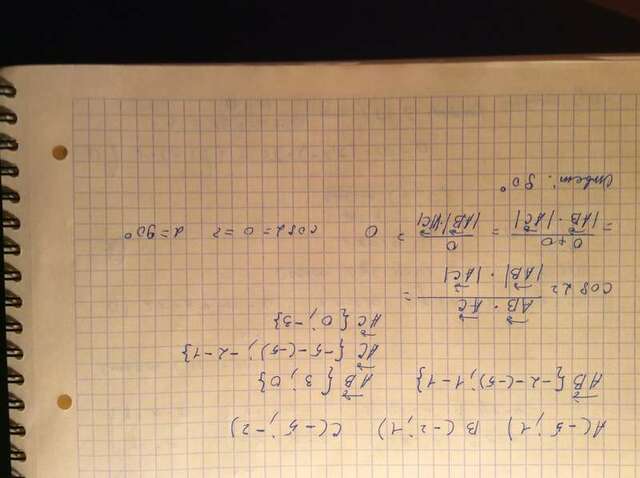 A(-5; 1) B(-2; 1) C(-5; -2)
AB{-2-(-5); 1-1}
AB{3; 0}
AC{-5-(-5); -2-1}
AC{0; -3}
cos α = AB · AC / |AB| · |AC| =
= 0+0 / |AB| · |AC| = 0 / |AB|·|AC| = 0 cos α = 0 => α = 90°
Ответ: 90°